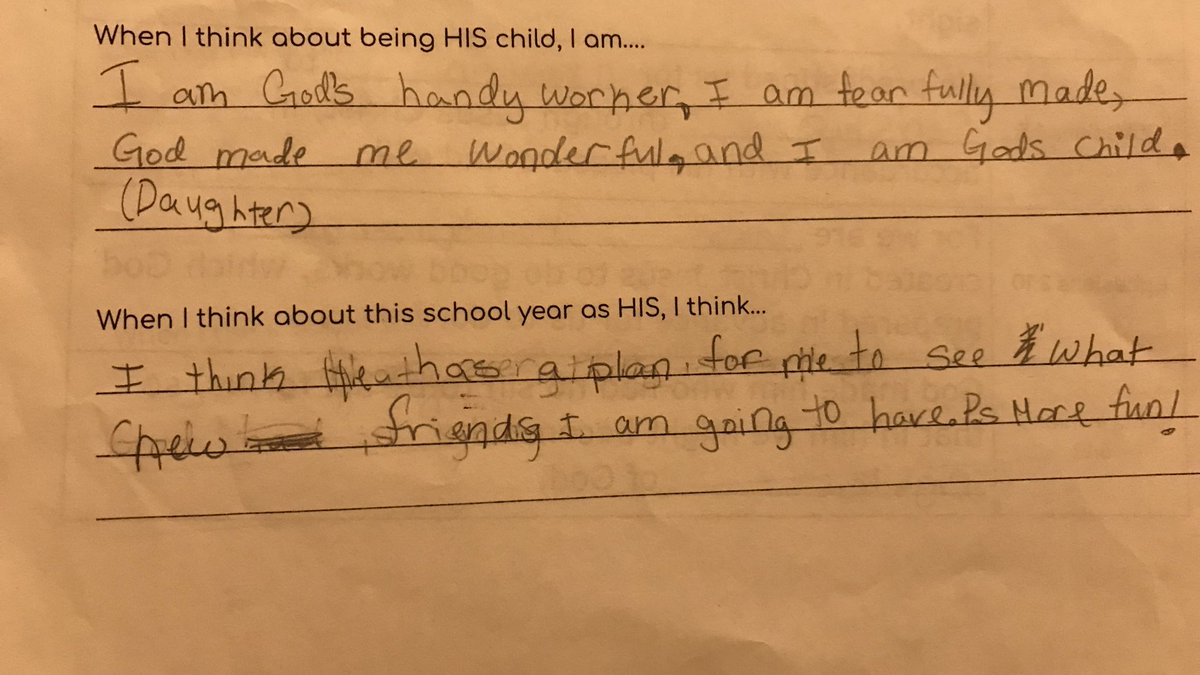 When I think about being HIS child, I am....
I am God's handy worker, I am fear fully made,
God made me Wonderful, and I am Gods child.
(Daughter)
When I think about this school year as HIS, I think...
I think He has a plan for me to see what
new friends I am going to have. Ps More fun!